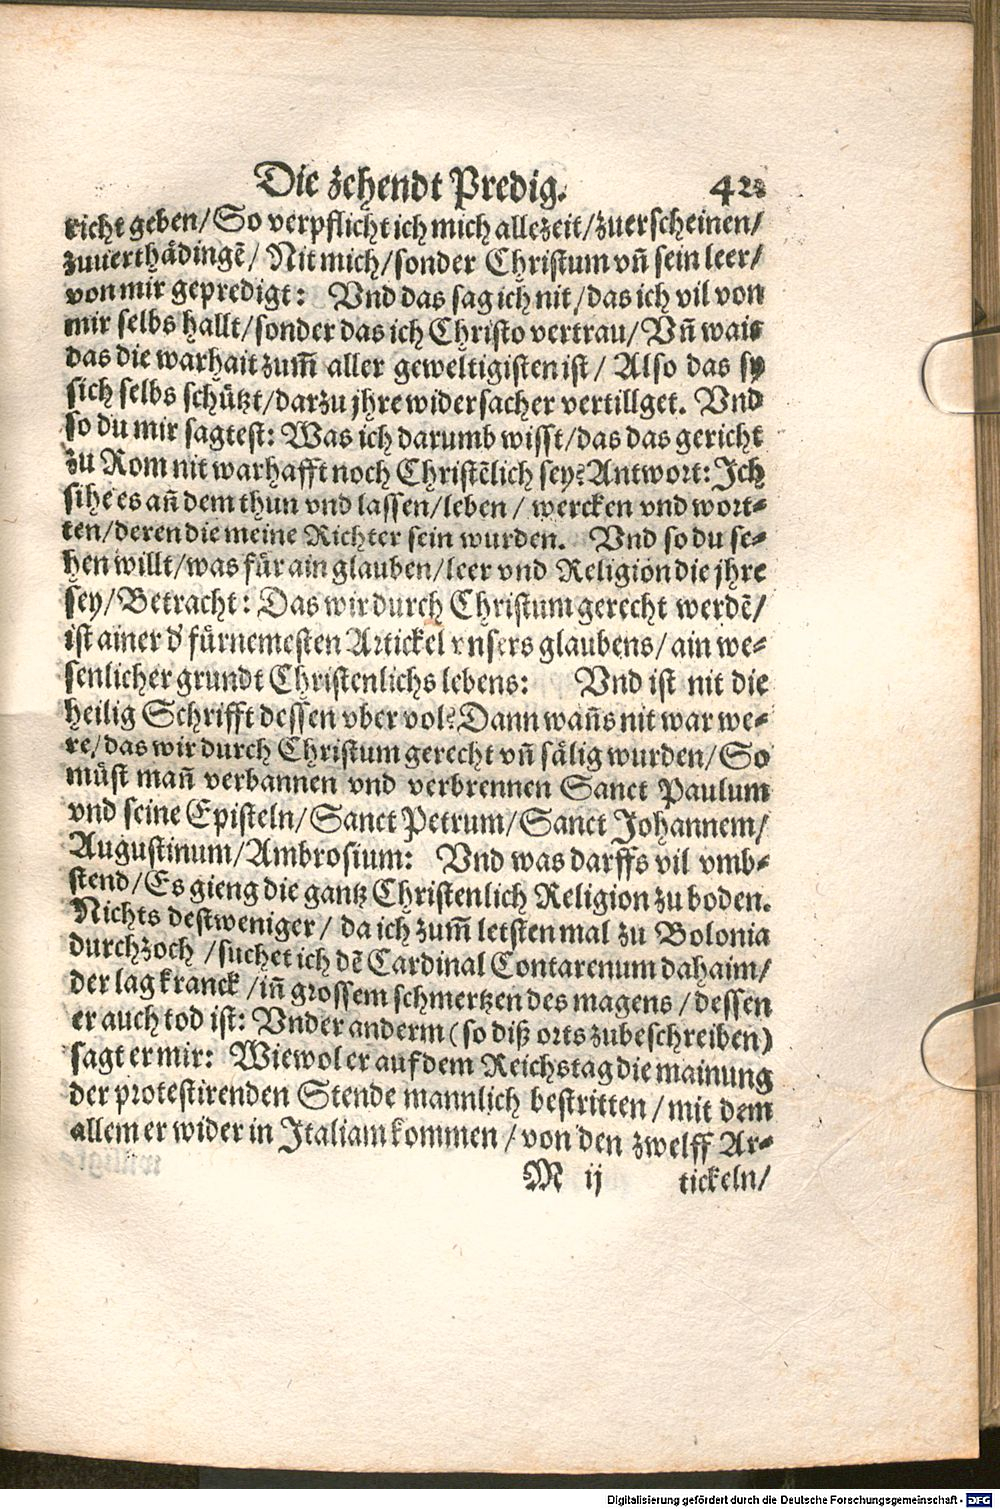 Die zehendt Predig. 42
richt geben/So verpflicht ich mich allezeit/zuerscheinen/
zuuerthädingē/ Nit mich/sonder Christum vñ sein leer/
von mir gepredigt: Vnd das sag ich nit/das ich vil von
mir selbs hallt/sonder das ich Christo vertrau/Vñ wais
das die warhait zum̄ aller geweltigisten ist/ Also das sy
sich selbs schützt/darzu jhre widersacher vertillget. Vnd
so du mir sagtest: Was ich darumb wisst/das das gericht
zu Rom nit warhafft noch Christēlich sey? Antwort: Ich
sihe es añ dem thun vnd lassen/leben/ wercken vnd wort-
ten/deren die meine Richter sein wurden. Vnd so du se-
hen willt/was für ain glauben/leer vnd Religion die jhre
sey/Betracht: Das wir durch Christum gerecht werdē/
ist ainer d' fürnemesten Artickel vnsers glaubens/ ain we-
senlicher grundt Christenlichs lebens: Vnd ist nit die
heilig Schrifft dessen vber vol? Dann wañs nit war we-
re/das wir durch Christum gerecht vñ sälig wurden/So
müst mañ verbannen vnd verbrennen Sanct Paulum
vnd seine Episteln/Sanct Petrum/Sanct Johannem/
Augustinum/Ambrosium: Vnd was darffs vil vmb-
stend/Es gieng die gantz Christenlich Religion zu boden.
Nichts destweniger/ da ich zum̄ letsten mal zu Bolonia
durchzoch /suchet ich dē Cardinal Contarenum dahaim/
der lag kranck /iñ grossem schmertzen des magens /dessen
er auch tod ist: Vnder anderm (so diß orts zubeschreiben)
sagt er mir: Wiewol er auf dem Reichstag die mainung
der protestirenden Stende mannlich bestritten /mit dem
allem er wider in Italiam kommen /von den zwelff Ar-
M ij tickeln/
Digitalisierung gefördert durch die Deutsche Forschungsgemeinschaft - DFG